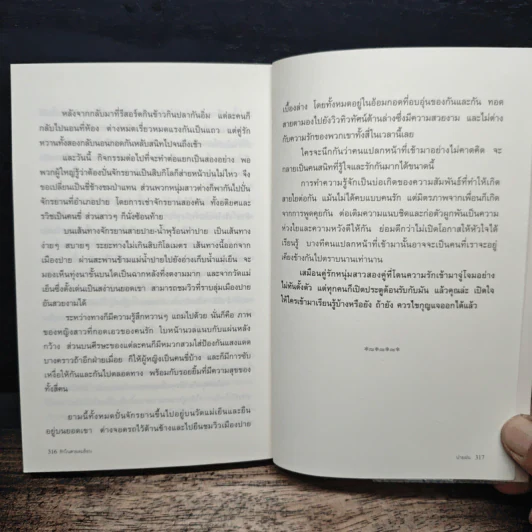 หลังจากกลับมาที่รีสอร์ตกินข้าวกินปลากันอิ่ม แต่ละคนก็
กลับไปนอนที่ห้อง ต่างหมดเรี่ยวหมดแรงกันเป็นแถว แต่คู่รัก
หวานทั้งสองกลับนอนกอดกันหลับสนิทไปจนถึงเช้า
และวันนี้ กิจกรรมต่อไปที่จะทำต่อแยกเป็นสองอย่าง พอ
พวกผู้ใหญ่รู้ว่าต้องปั่นจักรยานเป็นสิบกิโลก็ส่ายหน้าปั่นไม่ไหว จึง
ขอเปลี่ยนเป็นขี่ช้างชมป่าแทน ส่วนพวกหนุ่มสาวต่างก็พากันไปปั่น
จักรยานที่อำเภอปาย โดยการเช่าจักรยานสองคัน ทั้งอคิยคละ
รวิชเป็นคนขี่ ส่วนสาวๆ ก็นั่งซ้อนท้าย
บนเส้นทางจักรยานสายปาย-น้ำพุร้อนท่าปาย เป็นเส้นทาง
ง่ายๆ สบายๆ ระยะทางไม่เกินสิบกิโลเมตร เส้นทางนี้ออกจาก
เมืองปาย ผ่านสะพานข้ามแม่น้ำปายไปยังอ่างเก็บน้ำแม่เย็น จะ
มองเห็นทุ่งนาขั้นบันไดเป็นฉากหลังที่งดงามมาก และจากวัดแม่
เย็นซึ่งตั้งเด่นเป็นสง่าบนยอดเขา สามารถชมวิวที่ราบลุ่มเมืองปาย
อันสวยงามได้
ระหว่างทางก็มีความรู้สึกหวานๆ แถมไปด้วย นั่นก็คือ ภาพ
ของหญิงสาวที่กอดเอวของคนรัก ใบหน้านวลแนบกับแผ่นหลัง
กว้าง ส่วนบนศีรษะของแต่ละคนก็มีหมวกสวมใส่ป้องกันแสงแดด
บางคราวถ้าอีกฝ่ายเมื่อย ก็ให้ผู้หญิงเป็นคนขี่บ้าง และก็มีการซับ
เหงื่อให้กันและกันไปตลอดทาง พร้อมกับรอยยิ้มที่มีความสุขของ
ทั้งสี่คน
ยามนี้ทั้งหมดปั่นจักรยานขึ้นไปอยู่บนวัดแม่เย็นและยืน
อยู่บนยอดเขา ต่างจอดรถไว้ด้านข้างและไปยืนชมวิวเมืองปาย
316
เบื้องล่าง โดยทั้งหมดอยู่ในอ้อมกอดที่อบอุ่นของกันและกัน ทอด
สายตามองไปยังวิวทิวทัศน์ด้านล่างซึ่งมีความสวยงาม และไม่ต่าง
กับความรักของพวกเขาทั้งสี่ในเวลานี้เลย
ใครจะนึกกันว่าคนแปลกหน้าที่เข้ามาอย่างไม่คาดคิด จะ
กลายเป็นคนสนิทที่รู้ใจและรักกันมากได้ขนาดนี้
การทำความรู้จักเป็นบ่อเกิดของความสัมพันธ์ที่ทำให้เกิด
สายใยต่อกัน แม้นไม่ได้คบแบบคนรัก แต่มิตรภาพจากเพื่อนก็เกิด
จากการพูดคุยกัน ต่อเติมความแนบชิดและก่อตัวผูกพันเป็นความ
ห่วงใยและความหวังดีให้กัน ย่อมดีกว่าไม่เปิดโอกาสให้หัวใจได้
เรียนรู้ บางทีคนแปลกหน้าที่เข้ามานั้นอาจจะเป็นคนที่เราจะอยู่
ต้องข้างกันไปตราบนานเท่านาน
เสมือนคู่รักหนุ่มสาวสองคู่ที่โดนความรักเข้ามาจู่โจมอย่าง
ไม่ทันตั้งตัว แต่ทุกคนก็เปิดประตูต้อนรับกับมัน แล้วคุณล่ะ เปิดใจ
ให้ใครเข้ามาเรียนรู้บ้างหรือยัง ถ้ายัง ควรไขกุญแจออกได้แล้ว
317